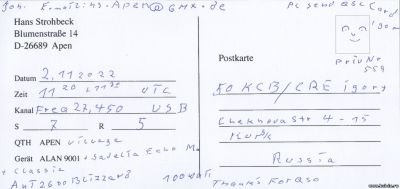 E-mail: ins-Apen@GMX.de
Pse send QSL Card
Hans Strohbeck
Blumenstraße 14
D-26689 Apen
Postkarte
Datum 2,11 2022
Zeit 11 20 UTC
Kanal Freq 27,450 USB
S 7 R 5
QTH APEN village
Gerät ALAN 9001 + Sadelta Echo Ma
+ Classic
100 watt
50 KCB/CRE Igory
Chekhova Str 4-15
Kursk
Russia
Thanks For QSO